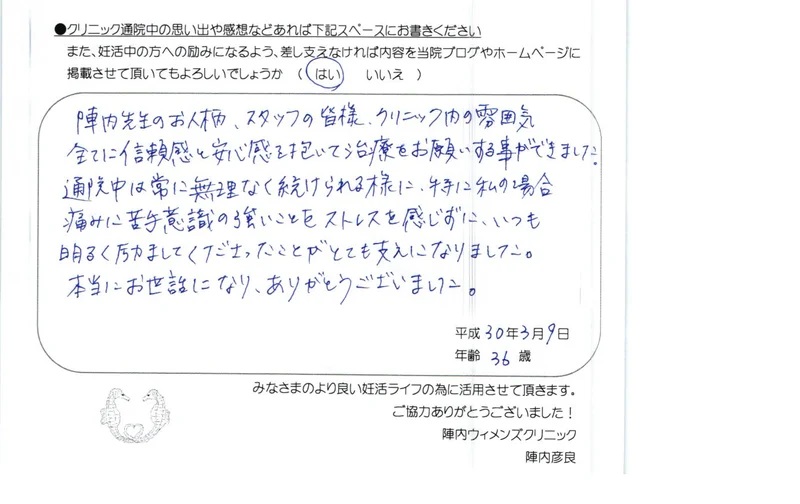 ●クリニック通院中の思い出や感想などあれば下記スペースにお書きください
また、妊活中の方への励みになるよう、差し支えなければ内容を当院ブログやホームページに
掲載させて頂いてもよろしいでしょうか （ はい いいえ ）
陣内先生のお人柄、スタッフの皆様、クリニック内の雰囲気
全てに信頼感と安心感を抱いて治療をお願いする事ができました。
通院中は常に無理なく続けられる様に、特に私の場合
痛みに苦手意識の強いことをストレスを感じずに、いつも
明るく励ましてくださったことがとても支えになりました。
本当にお世話になり、ありがとうございました。
平成 30年3月9日
年齢 36 歳
みなさまのより良い妊活ライフの為に活用させて頂きます。
ご協力ありがとうございました！
陣内ウィメンズクリニック
陣内彦良